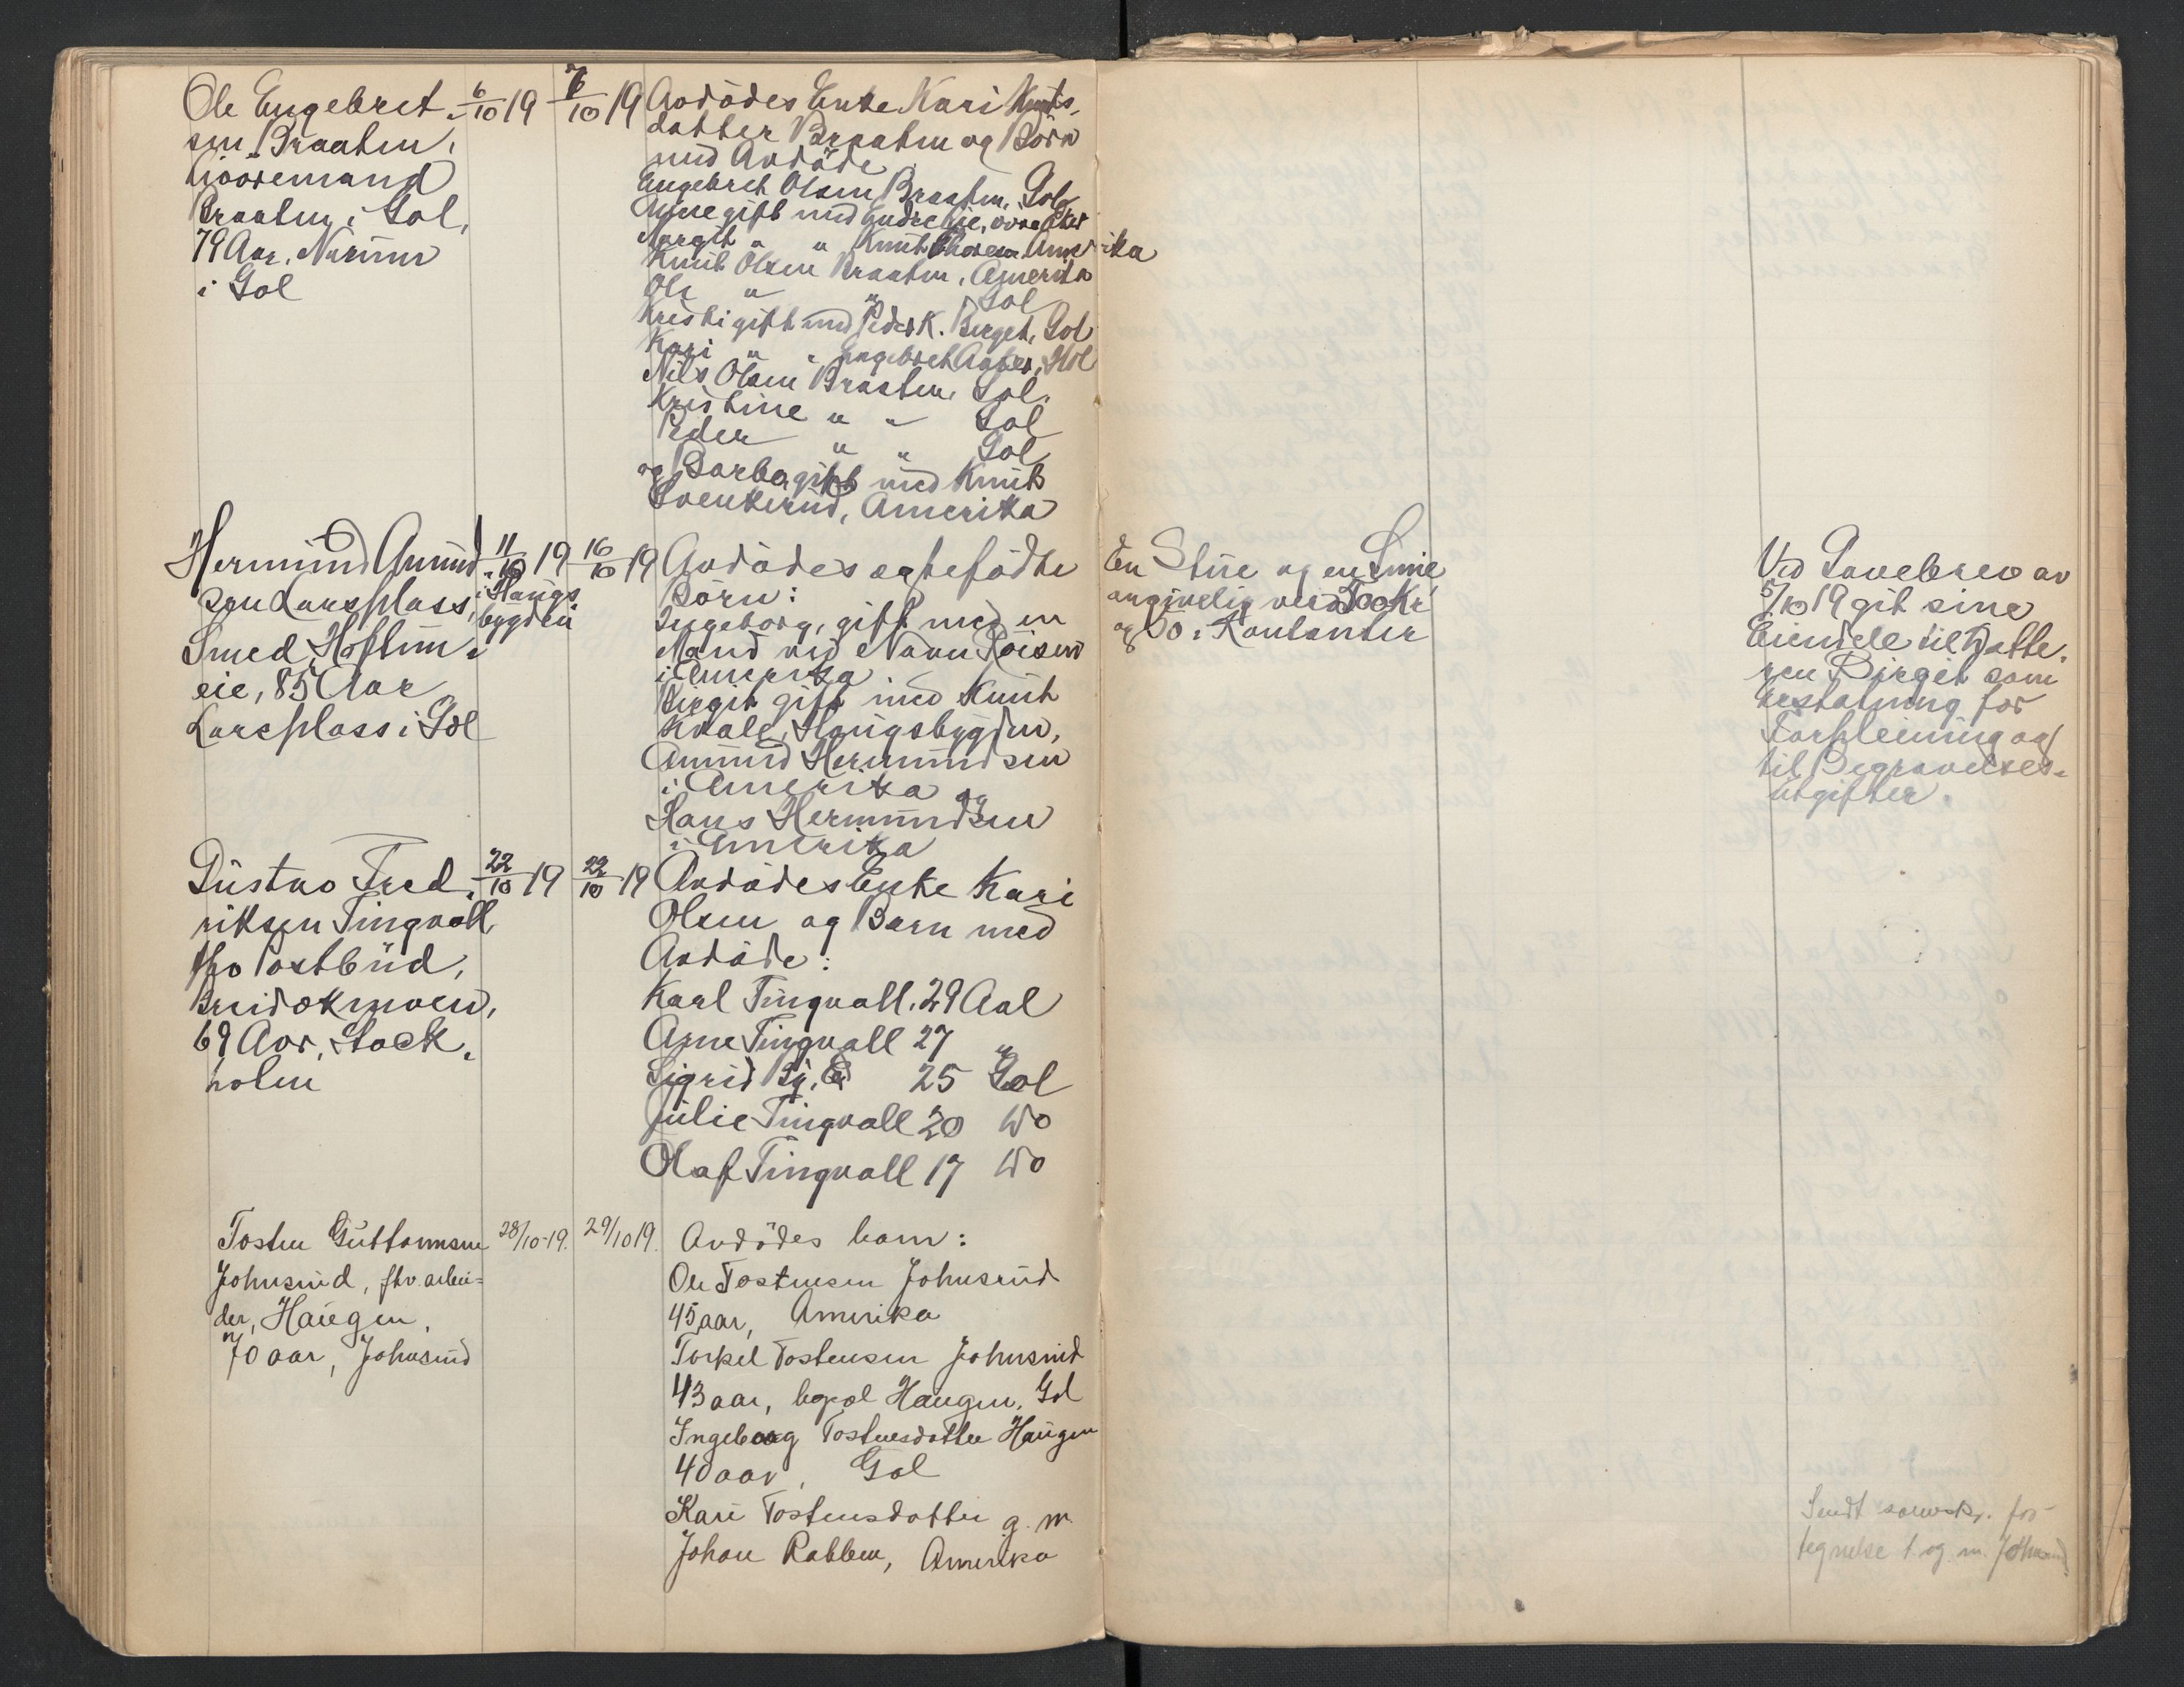 Ole Engebret-
sen Braaten,
Gaardmand
Braaten i Gol,
79 Aar,
i Gol
6/10 19
7/10 19
Avdödes Enke Kari Knuts-
datter Braaten og Börn
med Avdöde
Engebret Olsen Braaten, Gol
gift med Endre Lie,
Margit " " Knut Thoresen Amerika
Knut Olsen Braaten, Amerika
Ole " " Gol
Kristi gift med Peder K. Berget, Gol
Kari " " Engebret Aaker, Hol
Nils Olsen Braaten, Gol.
Kristine " " Gol
Peder " " Gol
og Barbo gift med Knut
Svenkerud, Amerika
Hermund Amund-
sen Larsplass,
Smed, Hoftun-
eie, 85 Aar
Larsplass i Gol
11/10 19
i Haugs
bygden
16/10 19
Avdödes egtefödte
Börn:
Ingeborg, gift med en
Mand ved Navn Röisen
i Amerika
Birgit gift med Knut
Kvale, Haugsbygden,
Amund Hermundsen
i Amerika og
Hans Hermundsen
i Amerika
En Stue og en Smie
angivelig verd Kr
og 50 i Kontanter
Ved Gavebrev av
5/10 19 git sine
Eiendele til Datte-
ren Birgit som
erstatning for
Forpleining og
til Begravelses-
utgifter.
Gustav Fred-
riksen Tingvall
fhv Postbud,
Bruidokmoen,
69 Aar, Stock-
holm
22/10 19
22/10 19
Avdödes Enke Kari
Olsen og Barn med
Avdöde:
Karl Tingvall, 29 Aal
Arne Tingvall 27 "
Sigrid 25 Gol
Julie Tingvall 20 Do
Olaf Tingvall 17 Do
Tosten Guttormsen
Johnsrud, fhv. arbei-
der, Haugen,
70 aar, Johnsrud
28/10-19.
29/10 19.
Avdödes barn:
Ole Tostensen Johnsrud
45 aar, Amerika
Torkel Tostensen Johnsrud
43 aar, Haugen, Gol
Ingeborg Tostensdatter Haugen
40 aar, Gol
Kari Tostensdatter g. m.
Johan Rabben, Amerika
Sendt sorensk. for-
tegnelse t. og m. Johnsrud